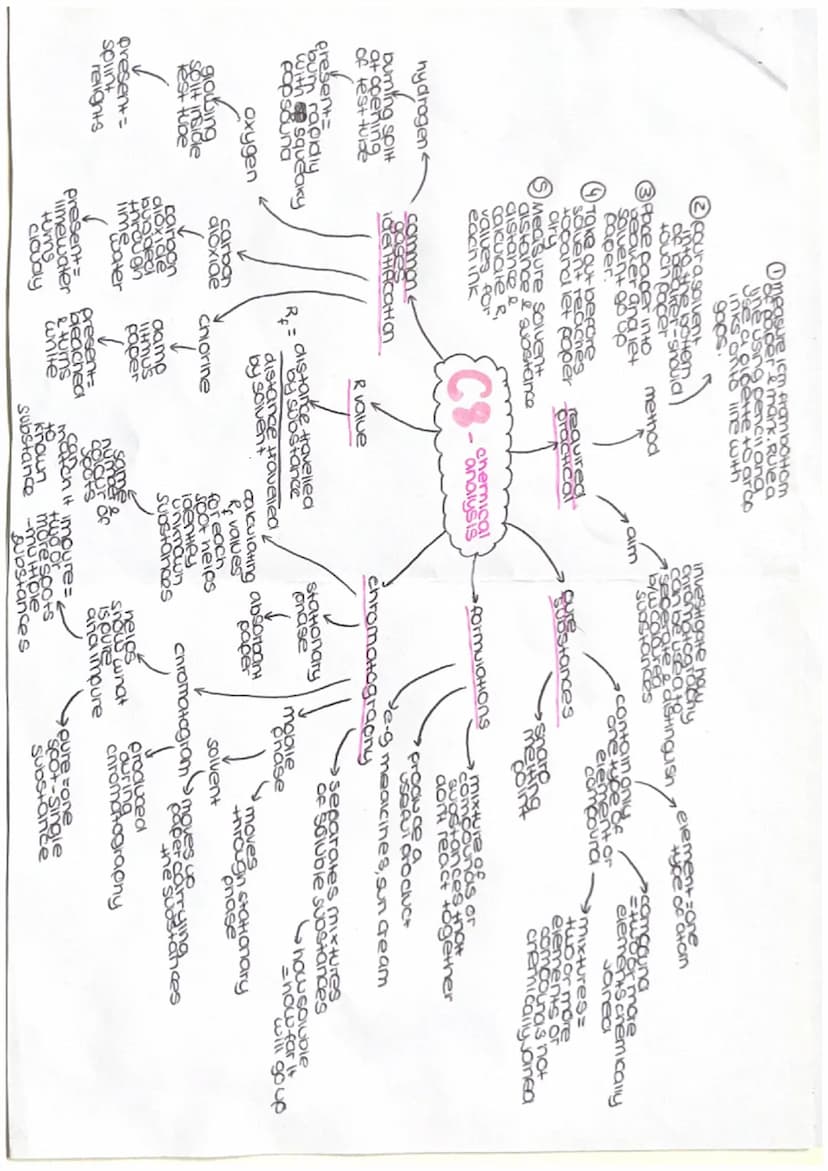 C8 - chemical
analysis
required
practical
method
① measure 1cm from bottom
of paper & mark. Rule a
line using pencil and
use a pipette to drop
inks onto line with
gaps.
② pour a solvent
touch paper
③ Place paper into
beaker and let
solvent go up
paper.
④ Take out before
solvent reaches
top and let paper
dry
⑤ Measure solvent
distance & substance
distance &
calculate Rf
values for
each ink
aim
investigate how
chromatography
can be used to
seperate & distinguish
b/w coloured
substances
pure
substances
contain only
one type of
element or
compound
element = one
type of atom
compound
= two or more
elements chemically
joined
mixtures =
two or more
elements or
compounds not
chemically joined
sharp
melting
point
formulations
mixture of
compounds or
substances that
don't react together
produce a
useful product
e.g medicines, sun cream
chromatography
separates mixtures
of soluble substances
how soluble
= how far it
will go up
mobile
phase
moves
through stationary
phase
solvent
moves up
paper carrying
the substances
chromatogram
produced
during
chromatography
helps
show what
is pure
and impure
pure = one
spot - single
substance
impure =
two or
more spots
- multiple
substances
stationary
phase
absorbant
paper
calculating
Rf values
for each
spot helps
identify
unknown
substances
same
number &
colour of
spots
match it
to
known
substance
R value
Rf = distance travelled
by substance
distance travelled
by solvent
common
gases
identification
hydrogen
burning split
at opening
of test tube
present =
burn rapidly
with squeaky
pop sound
oxygen
glowing
split inside
test tube
present =
splint
relights
carbon
dioxide
carbon
dioxide
bubbled
through
lime water
present =
limewater
turns
cloudy
chlorine
damp
litmus
paper
present =
bleached
& turns
white